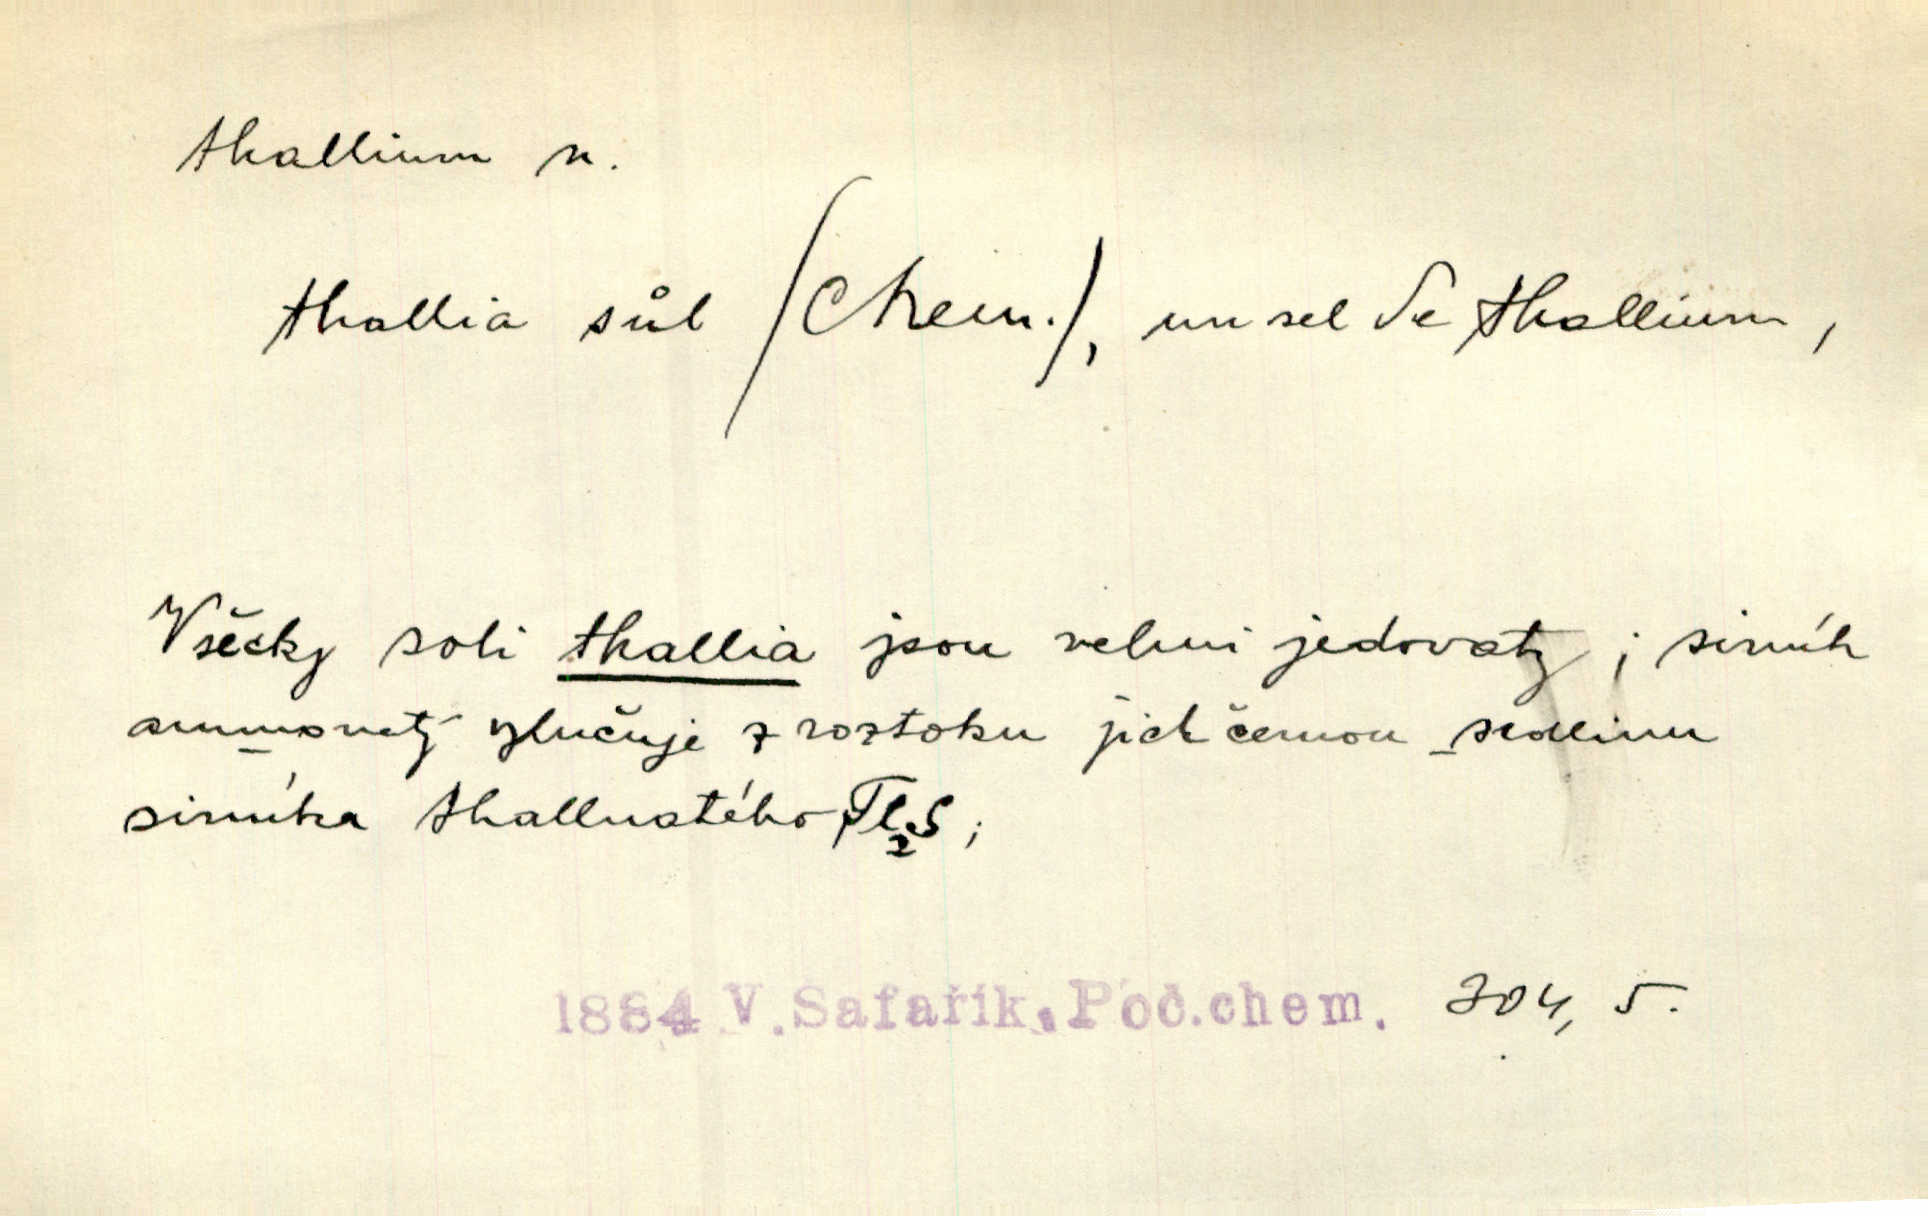 thallium n.
thallia sůl (Chem.), un sel de thallium,
Všecky soli thallia jsou velmi jedovaty; sirník
ammonatý vylučuje z roztoku jich černou sedlinu
sirníka thallnatého Tl₂S;
1884 V.Šafařík,Poč.chem. 304, 5.